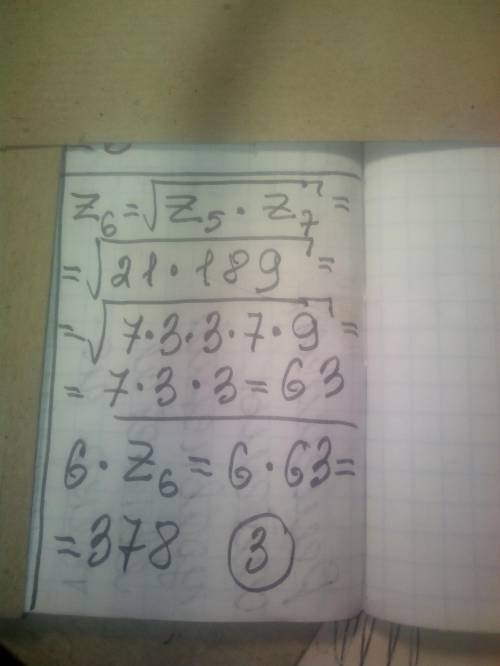 Z₆ = √(Z₅ · Z₇) =
= √(21 · 189) =
= √(7 · 3 · 3 · 7 · 9) =
= 7 · 3 · 3 = 63
6 · Z₆ = 6 · 63 =
= 378 3